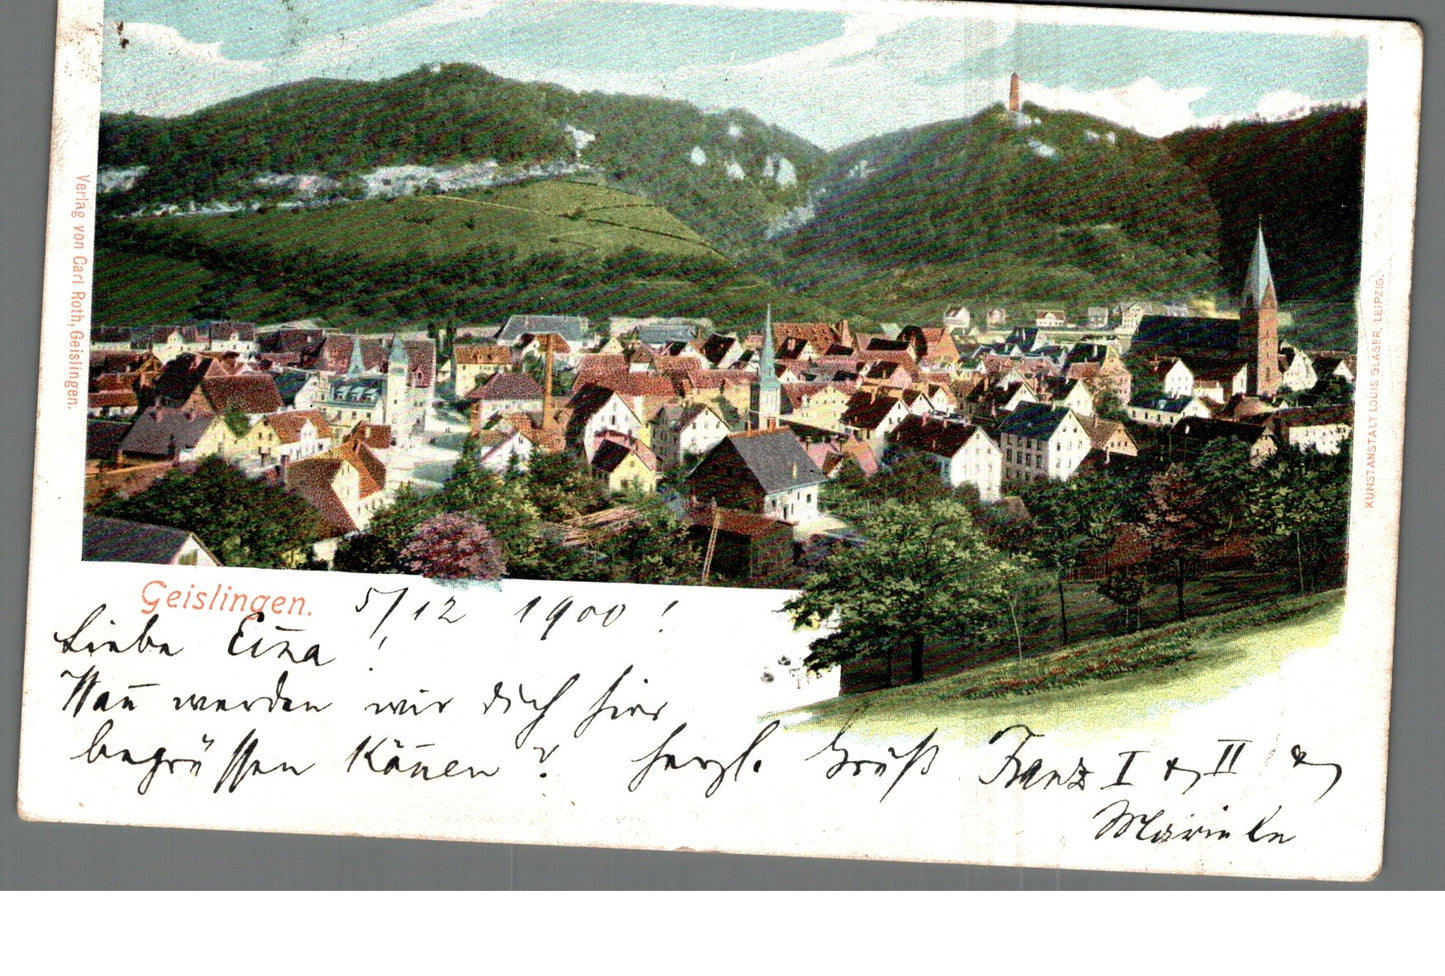 Geislingen. 5/12 1900!
Liebe !
Wan̄ werden wir dich hier
begrüssen Kön̄en? herzl. Gruß Franz I & II &
Mariele
Verlag von Carl Roth, Geislingen.
KUNSTANSTALT LOUIS GLASER, LEIPZIG.